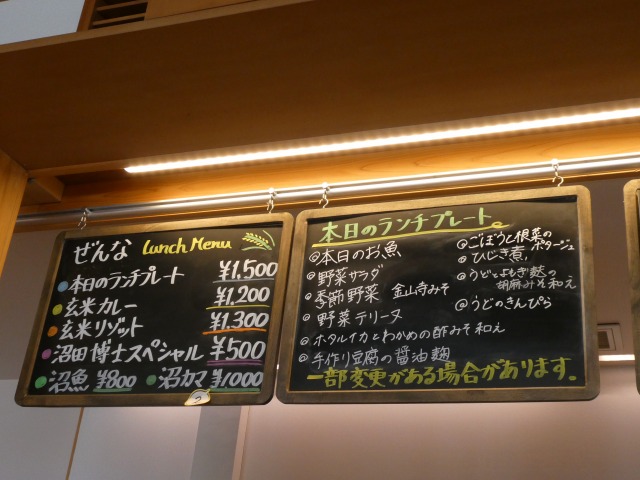 ぜんな Lunch Menu
本日のランチプレート ¥1,500
玄米カレー ¥1,200
玄米リゾット ¥1,300
沼田博士スペシャル ¥500
沼魚 ¥800 沼カマ ¥1000
本日のランチプレート。
@本日のお魚
@野菜サラダ
@季節野菜 金山寺みそ
@野菜テリーヌ
@ホタルイカとわかめの酢みそ和え
@手作り豆腐の醤油麹
@ごぼうと根菜の
ポタージュ
@ひじき煮,
@うどとよもぎ麩の
胡麻みそ和え
@うどのきんぴら
一部変更がある場合があります。